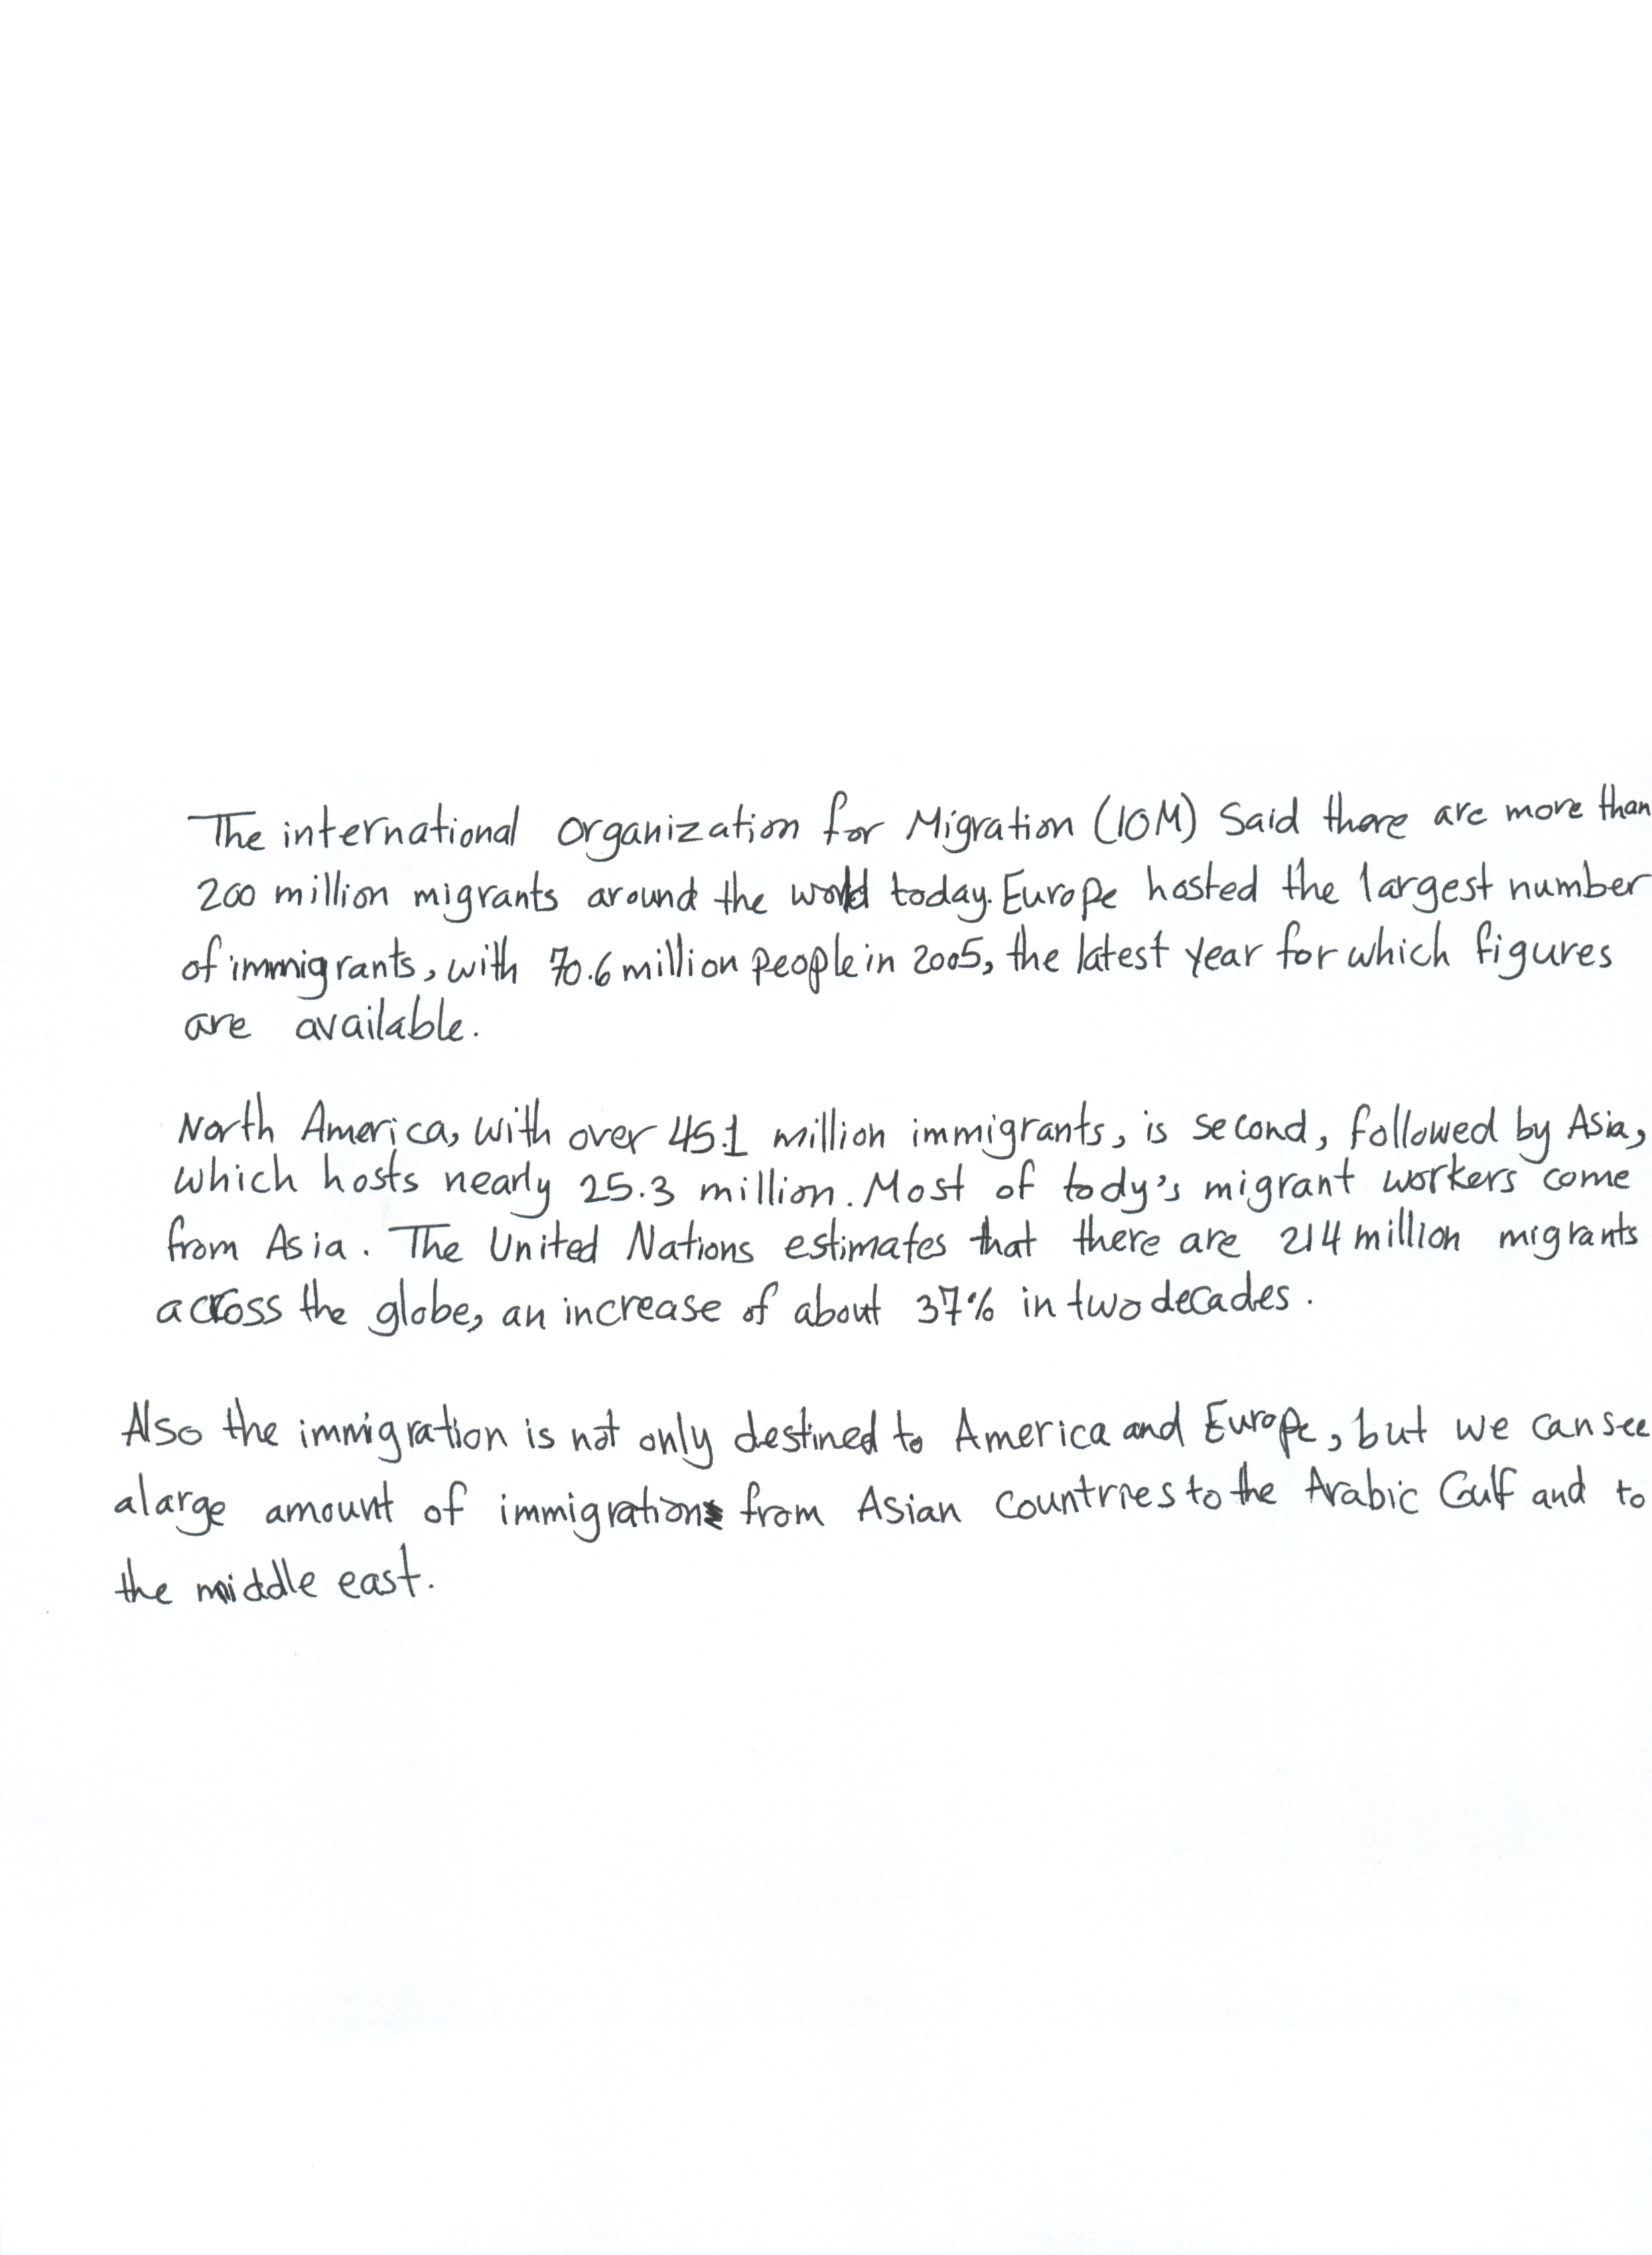 The international organization for Migration (IOM) Said there are more than
200 million migrants around the world today. Europe hosted the largest number
of immigrants, with 70.6 million people in 2005, the latest year for which figures
are available.
North America, with over 45.1 million immigrants, is second, followed by Asia,
which hosts nearly 25.3 million. Most of tody's migrant workers come
from Asia. The United Nations estimates that there are 214 million migrants
across the globe, an increase of about 37% in two decades.
Also the immigration is not only destined to America and Europe, but we can see
a large amount of immigration from Asian countries to the Arabic Gulf and to
the middle east.